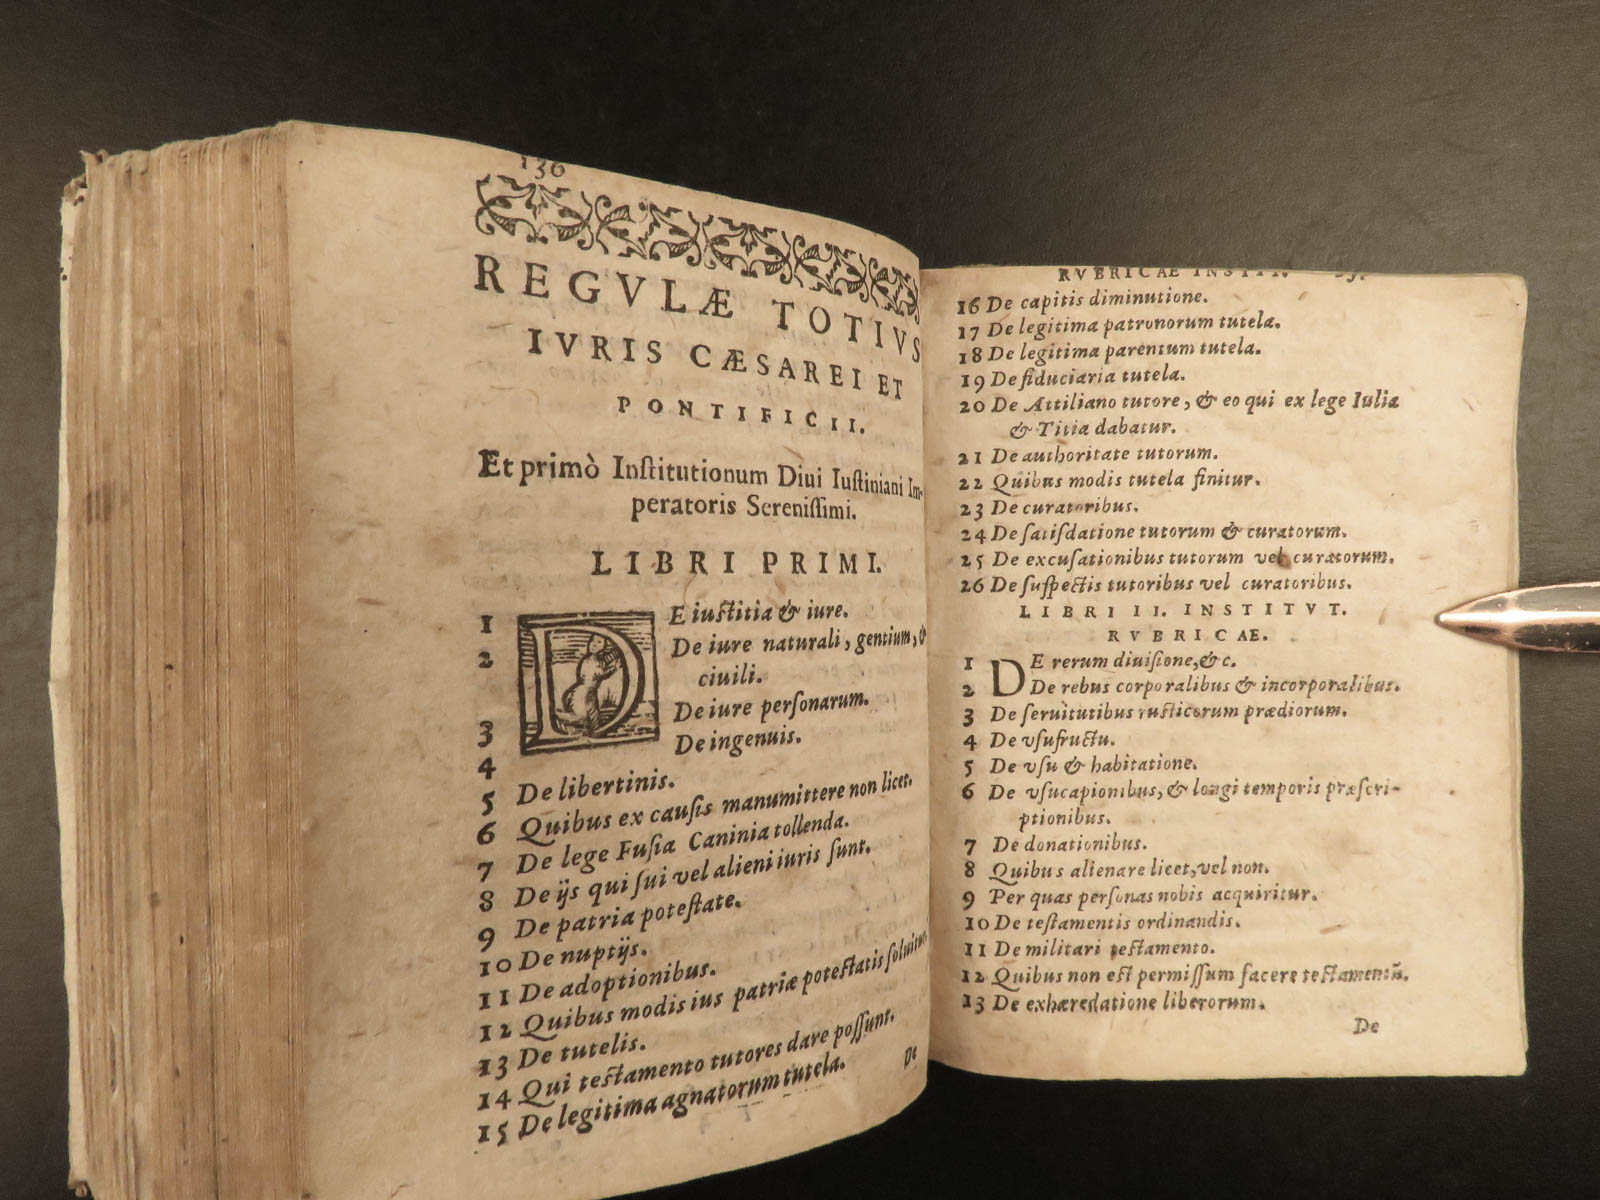 136
REGVLÆ TOTIVS
IVRIS CÆSAREI ET
PONTIFICII.
Et primò Inſtitutionum Diui Iuſtiniani Im-
peratoris Sereniſſimi.
LIBRI PRIMI.
1 DE iuſtitia & iure.
2 De iure naturali, gentium, &
ciuili.
3 De iure perſonarum.
4 De ingenuis.
5 De libertinis.
6 Quibus ex cauſis manumittere non licet.
7 De lege Fuſia Caninia tollenda.
8 De ijs qui ſui vel alieni iuris ſunt.
9 De patria poteſtate.
10 De nuptijs.
11 De adoptionibus.
12 Quibus modis ius patriæ poteſtatis ſoluitur.
13 De tutelis.
14 Qui teſtamento tutores dare poſſunt.
15 De legitima agnatorum tutela.
De
RVBRICAE INSTIT.
16 De capitis diminutione.
17 De legitima patronorum tutela.
18 De legitima parentum tutela.
19 De fiduciaria tutela.
20 De Attiliano tutore, & eo qui ex lege Iulia
& Titia dabatur.
21 De authoritate tutorum.
22 Quibus modis tutela finitur.
23 De curatoribus.
24 De ſatiſdatione tutorum & curatorum.
25 De excuſationibus tutorum vel curatorum.
26 De ſuſpectis tutoribus vel curatoribus.
LIBRI II. INSTITVT.
RVBRICAE.
1 DE rerum diuiſione, &c.
2 De rebus corporalibus & incorporalibus.
3 De ſeruitutibus ruſticorum prædiorum.
4 De vſufructu.
5 De vſu & habitatione.
6 De vſucapionibus, & longi temporis præſcri-
ptionibus.
7 De donationibus.
8 Quibus alienare licet, vel non.
9 Per quas perſonas nobis acquiritur.
10 De teſtamentis ordinandis.
11 De militari teſtamento.
12 Quibus non eſt permiſſum facere teſtamentū.
13 De exhæredatione liberorum.
De